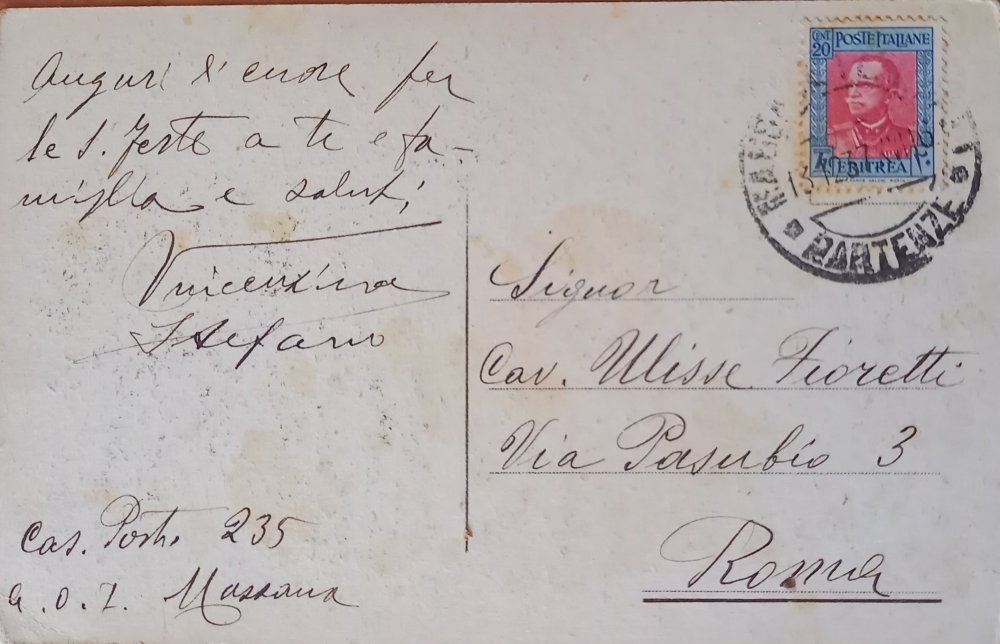 Auguri di cuore per
le S. Feste a te e fa-
miglia e saluti,
Vincenzina
Stefano
Cas. Post. 235
A.O.I. Massaua
CENT. 20 POSTE ITALIANE
ERITREA
PARTENZE
Signor
Cav. Ulisse Fioretti
Via Pasubio 3
Roma